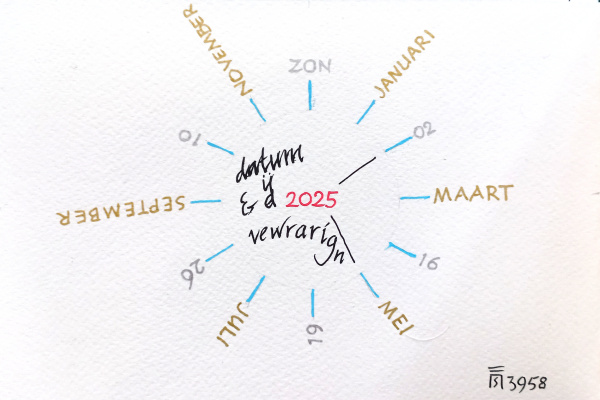 NOVEMBER
ZON
JANUARI
02
MAART
16
MEI
19
JULI
26
SEPTEMBER
10
datum
ij
& d 2025
vewrarign
3958